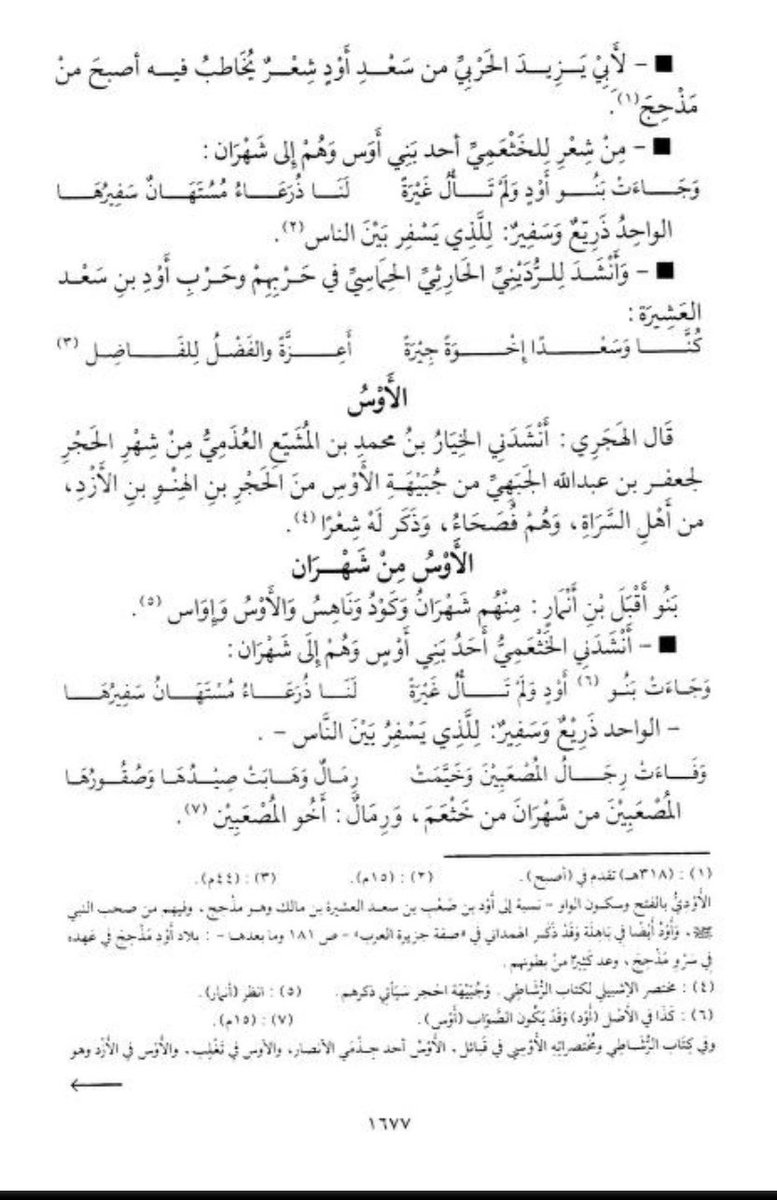 ■ – لأَبِيْ يَزِيدَ الحَرْبِيِّ من سَعْدِ أَوْدٍ شِعْرٌ يُخَاطبُ فيه أصبحَ منْ
مَذْحِجَ(١).
■ – مِنْ شِعْرِ لِلخَثْعَمِيِّ أحد بَنِي أَوَس وَهُمْ إِلى شَهْرَان :
وَجَاءَتْ بَنُو أَوْدٍ وَلَمْ تَأْلُ غَيْرَةً لَنَا ذُرَعَاءُ مُسْتَهَانٌ سَفِيرُهَا
الواحِدُ ذَرِيْعٌ وَسَفِيرٌ: لِلَّذِي يَسْفِر بَيْنَ الناس(٢).
■ – وَأَنْشَدَ لِلرُّدَيْنِيِّ الحَارِثِيِّ الحِمَاسِيِّ في حَرْبِهِمْ وحَرْبِ أَوْدِ بنِ سَعْد
العَشِيرَة :
كُنَّا وَسَعْدًا إِخْوَةً جِيْرَةً أَعِزَّةً والفَضْلُ لِلفَاضِل (٣)
الأَوْسُ
قَال الهَجَرِي : أَنْشَدَني الخِيَارُ بنُ محمدِ بن المُشَيّعِ العُذَمِيُّ مِنْ شِهْرِ الحَجْرِ
لجعفر بن عبدالله الجَبَهِيِّ من جُبَيْهَةِ الأَوْسِ منَ الحَجْرِ بنِ الهِنْوِ بنِ الأَزْدِ،
من أَهْلِ السَّرَاةِ، وَهُمْ فُصَحَاءُ، وَذَكَر لَهْ شِعْرًا(٤).
الأَوْسُ مِنْ شَهْرَان
بَنُو أَقْبَلَ بْنِ أَنْمَارٍ : مِنْهُم شَهْرَانُ وَكَوْدُ وَنَاهِسُ وَالأَوْسُ وَإِوَاس (٥).
■ – أَنْشَدَنِي الخَثْعَمِيُّ أَحَدُ بَنِي أَوْسٍ وَهُمْ إِلَى شَهْرَان:
وَجَاءَتْ بَنُو (٦) أَوْدٍ وَلَمْ تَأْلُ غَيْرَةً لَنَا ذُرَعَاءُ مُسْتَهَانُ سَفِيرُهَا
– الواحد ذَرِيْعٌ وَسَفِيرٌ: لِلَّذِي يَسْفِرُ بَيْنَ النَّاس – .
وَفَاءَتْ رِجَالُ المُصْعَبِيْنَ وَخَيَّمَتْ رِمَالٌ وَهَابَتْ صِيْدُهَا وَصُقُورُهَا
المُصْعَبِيْنَ من شَهْرَانَ من خَثْعَمَ، وَرِمَالٌ: أَخُو المُصْعَبِيْن (٧).
(١) : (٣١٨هـ) تقدم في (أصبح). (٢) : (١٥م). (٣) : (٤٤م).
الأَوْدِيُّ بالفتح وسكون الواو – نسبة إلى أَوْد بن صَعْب بن سعد العشيرة بن مالك وهو مذْحِج، وفيهم من صحب النبي
ﷺ، وَأَوْدُ أَيْضًا فِي بَاهِلَة وَقَدْ ذَكَر الهمداني في «صفة جزيرة العرب» – ص ١٨١ وما بعدها – : بلاد أَوْدِ مَذْحِجَ في عهده
في سَرْوِ مَذْحِجَ، وعد كَثِيرًا منْ بطونهم.
(٤) : مختصر الإشبيلي لكتاب الرُّشَاطِي. وَجُبَيْهَة الحجر سَيَأتي ذكرهم. (٥) : انظر (أنمار).
(٦) : كَذَا في الأصْل (أوْد) وَقَدْ يَكُون الصَّوَاب (أَوْس). (٧) : (١٥م).
وفي كِتَاب الرُّشَاطِي ومُخْتَصَراتِه الأَوْسِي في قَبائل، الأَوْسُ أحد جِذْمَي الأنصار، والأَوس في تَغْلِب، والأَوْس في الأَزْد وهو
١٦٧٧